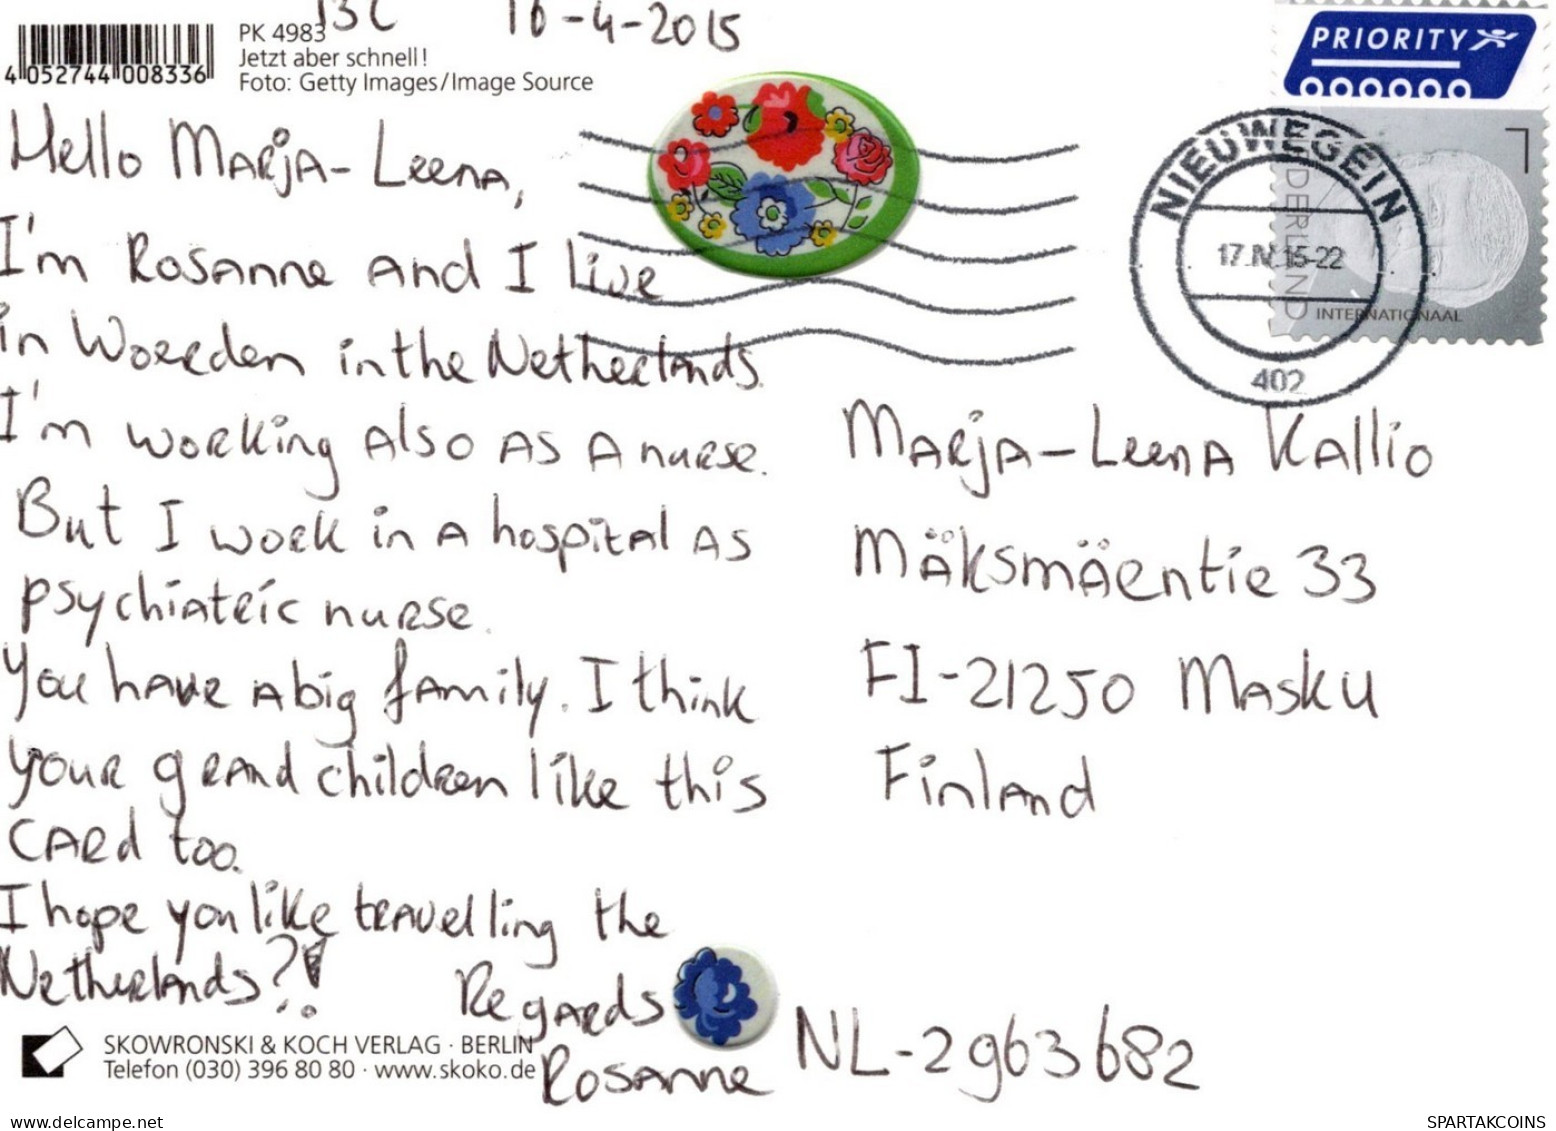 13C 16-4-2015
PK 4983
Jetzt aber schnell!
Foto: Getty Images/Image Source
4 052744 008336
PRIORITY
NIEUWEGEIN
17.IV.15-22
402
1
DERLAND
INTERNATIONAAL
Hello Marja-Leena,
I'm Rosanne and I live
in Woerden in the Netherlands.
I'm working also as a nurse.
But I work in a hospital as
psychiatric nurse.
You have a big family. I think
your grand children like this
card too.
I hope you like travelling the
Netherlands?!
Regards
Rosanne
Marja-Leena Kallio
Mäksmäentie 33
FI-21250 Masku
Finland
NL-2963682
SKOWRONSKI & KOCH VERLAG · BERLIN
Telefon (030) 396 80 80 · www.skoko.de
www.delcampe.net
SPARTAKCOINS